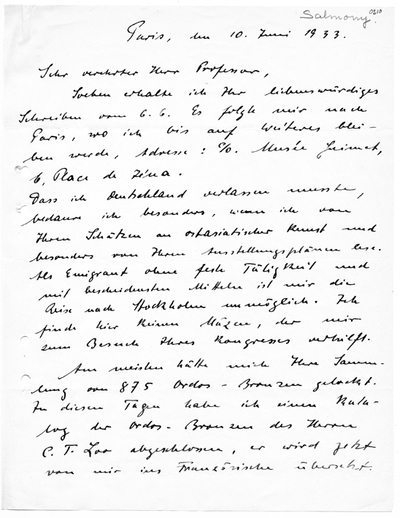 Salmony.
0210
Paris, den 10. Juni 1933.
Sehr verehrter Herr Professor,
Soeben erhalte ich Ihr liebenswürdiges
Schreiben vom 6.6. Es folgte mir nach
Paris, wo ich bis auf weiteres blei-
ben werde, Adresse: c/o. Musée Guimet,
6, Place de Jéna.
Dass ich Deutschland verlassen musste,
bedaure ich besonders, wenn ich von
Ihren Schätzen an ostasiatischer Kunst und
besonders von Ihren Ausstellungsplänen lese.
Als Emigrant ohne feste Tätigkeit und
mit bescheidensten Mitteln ist mir die
Reise nach Stockholm unmöglich. Ich
finde hier keinen Mäzen, der mir
zum Besuch Ihres Kongresses verhilft.
Am meisten hätte mich Ihre Samm-
lung von 875 Ordos-Bronzen gelockt.
In diesen Tagen habe ich einen Kata-
log der Ordos-Bronzen des Herrn
C. T. Loo abgeschlossen, er wird jetzt
von mir ins Französische übersetzt.